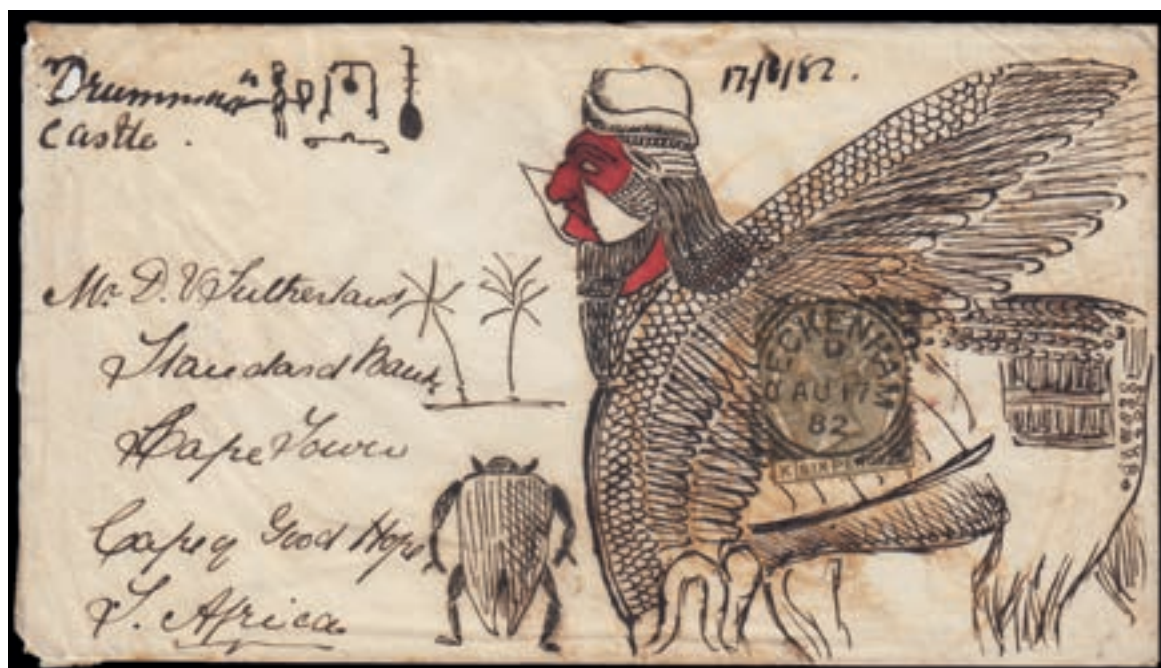 "Drummond"
Castle.
17/8/82.
Mr D. V Sutherland
Standard Bank
Cape Town
Cape of Good Hope
S. Africa
ECKENHAM
D
AU 17
82
K SIXPEN